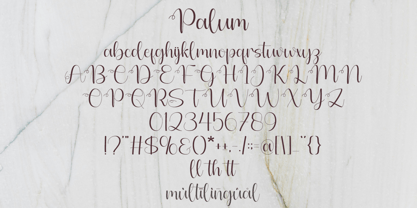 Palum
abcdefghijklmnopqrstuvwxyz
ABCDEFGHIJKLMN
OPQRSTUVWXYZ
0123456789
!?'"#$%&()*+,-./:;=@[\]_¨{}
ll th tt
multilingual